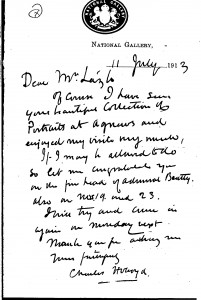 NATIONAL GALLERY,
11 July 1913
Dear Mr Laszlo
Of course I have seen
your beautiful collection of
Portraits at Agnews and
enjoyed my visits very much,
If I may be allowed to do
so let me congratulate you
on the fine head of Admiral Beatty.
also on Nos 19 and 23.
I will try and come in
again on Monday next
Thank you for asking me
Yours sincerely
Charles Holroyd